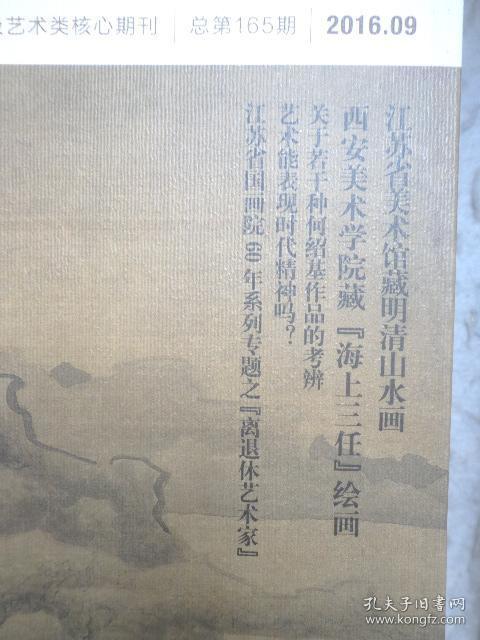 艺术类核心期刊 | 总第165期 | 2016.09
江苏省美术馆藏明清山水画
西安美术学院藏『海上三任』绘画
关于若干种何绍基作品的考辨
艺术能表现时代精神吗？
江苏省国画院60年系列专题之『离退休艺术家』
孔夫子旧书网
www.kongfz.com